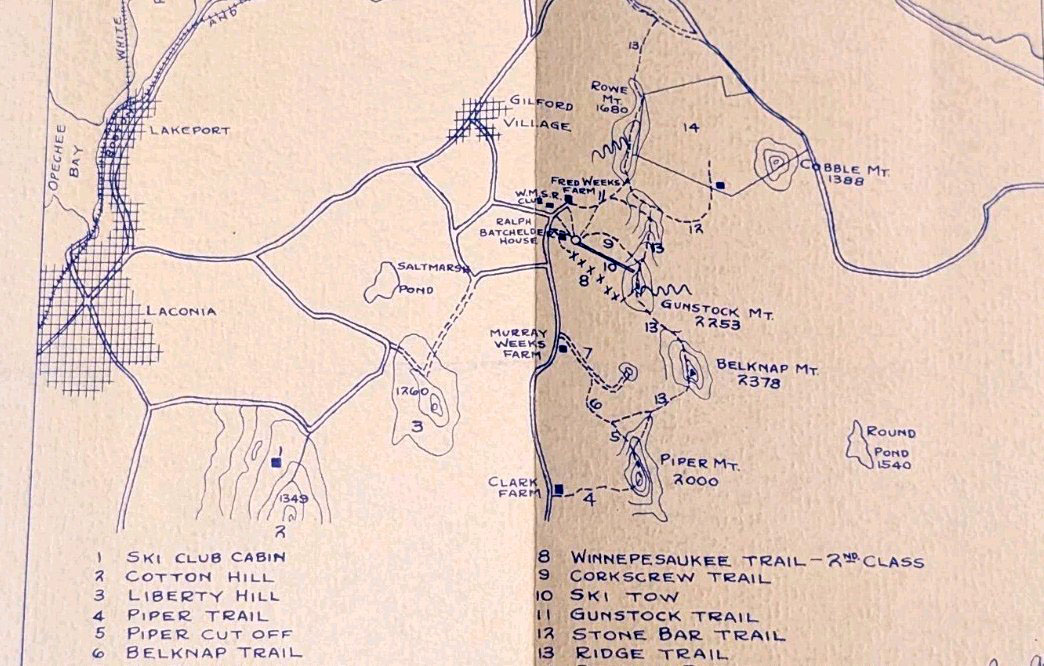 WHITE
AND
BOSTON
13
ROWE
MT.
1680
GILFORD
VILLAGE
14
LAKEPORT
OPECHEE
BAY
COBBLE MT.
1388
FRED WEEKS
FARM
11
W.M.S.R.
CLUB
RALPH
BATCHELDER
HOUSE
12
9
13
10
8
SALTMARSH
POND
GUNSTOCK MT.
2253
LACONIA
13
MURRAY
WEEKS
FARM
7
BELKNAP MT.
2378
1260
3
6
13
5
ROUND
POND
1540
1
PIPER MT.
2000
CLARK
FARM
4
1349
2
1 SKI CLUB CABIN
2 COTTON HILL
3 LIBERTY HILL
4 PIPER TRAIL
5 PIPER CUT OFF
6 BELKNAP TRAIL
8 WINNEPESAUKEE TRAIL - 2ND. CLASS
9 CORKSCREW TRAIL
10 SKI TOW
11 GUNSTOCK TRAIL
12 STONE BAR TRAIL
13 RIDGE TRAIL